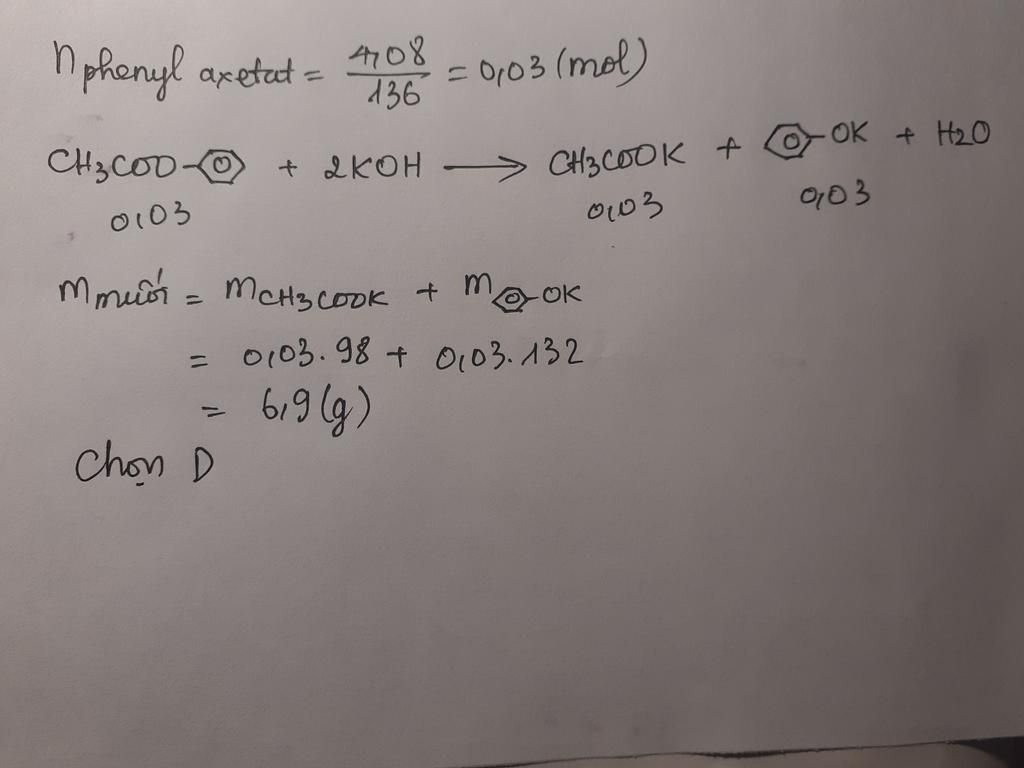 n phenyl axetat = 4,08 / 136 = 0,03 (mol)
CH3COO-⌬ + 2KOH ⟶ CH3COOK + ⌬-OK + H2O
0,03 0,03 0,03
m muối = m CH3COOK + m ⌬-OK
= 0,03.98 + 0,03.132
= 6,9 (g)
Chọn D